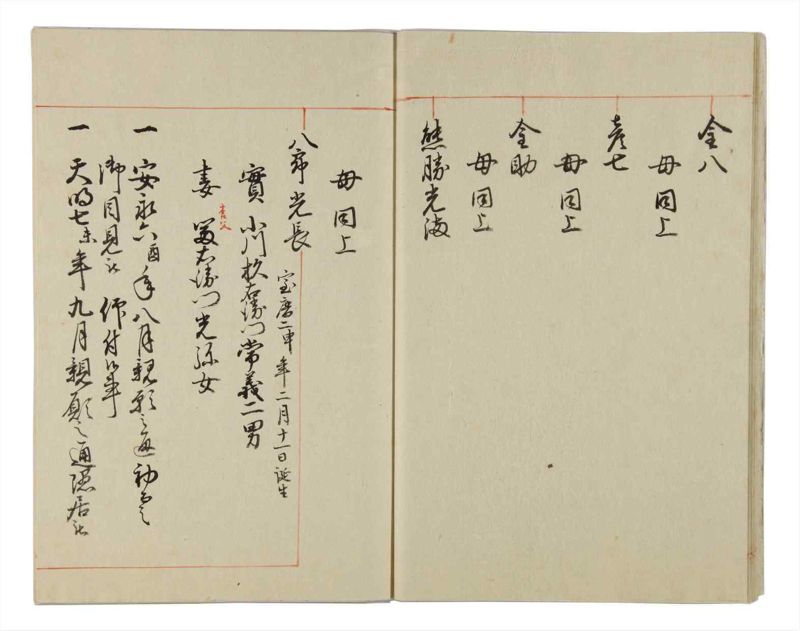 金八
母同上
彦七
母同上
金助
母同上
熊勝光海
母同上
八郎光長 宝暦二申年二月十一日誕生
實小川杦右衛門常義二男
養父
妻 冨右衛門光弥女
一安永六酉年八月親願之通初而之
御目見被 仰付候事
一天明七未年九月親願之通隠居被